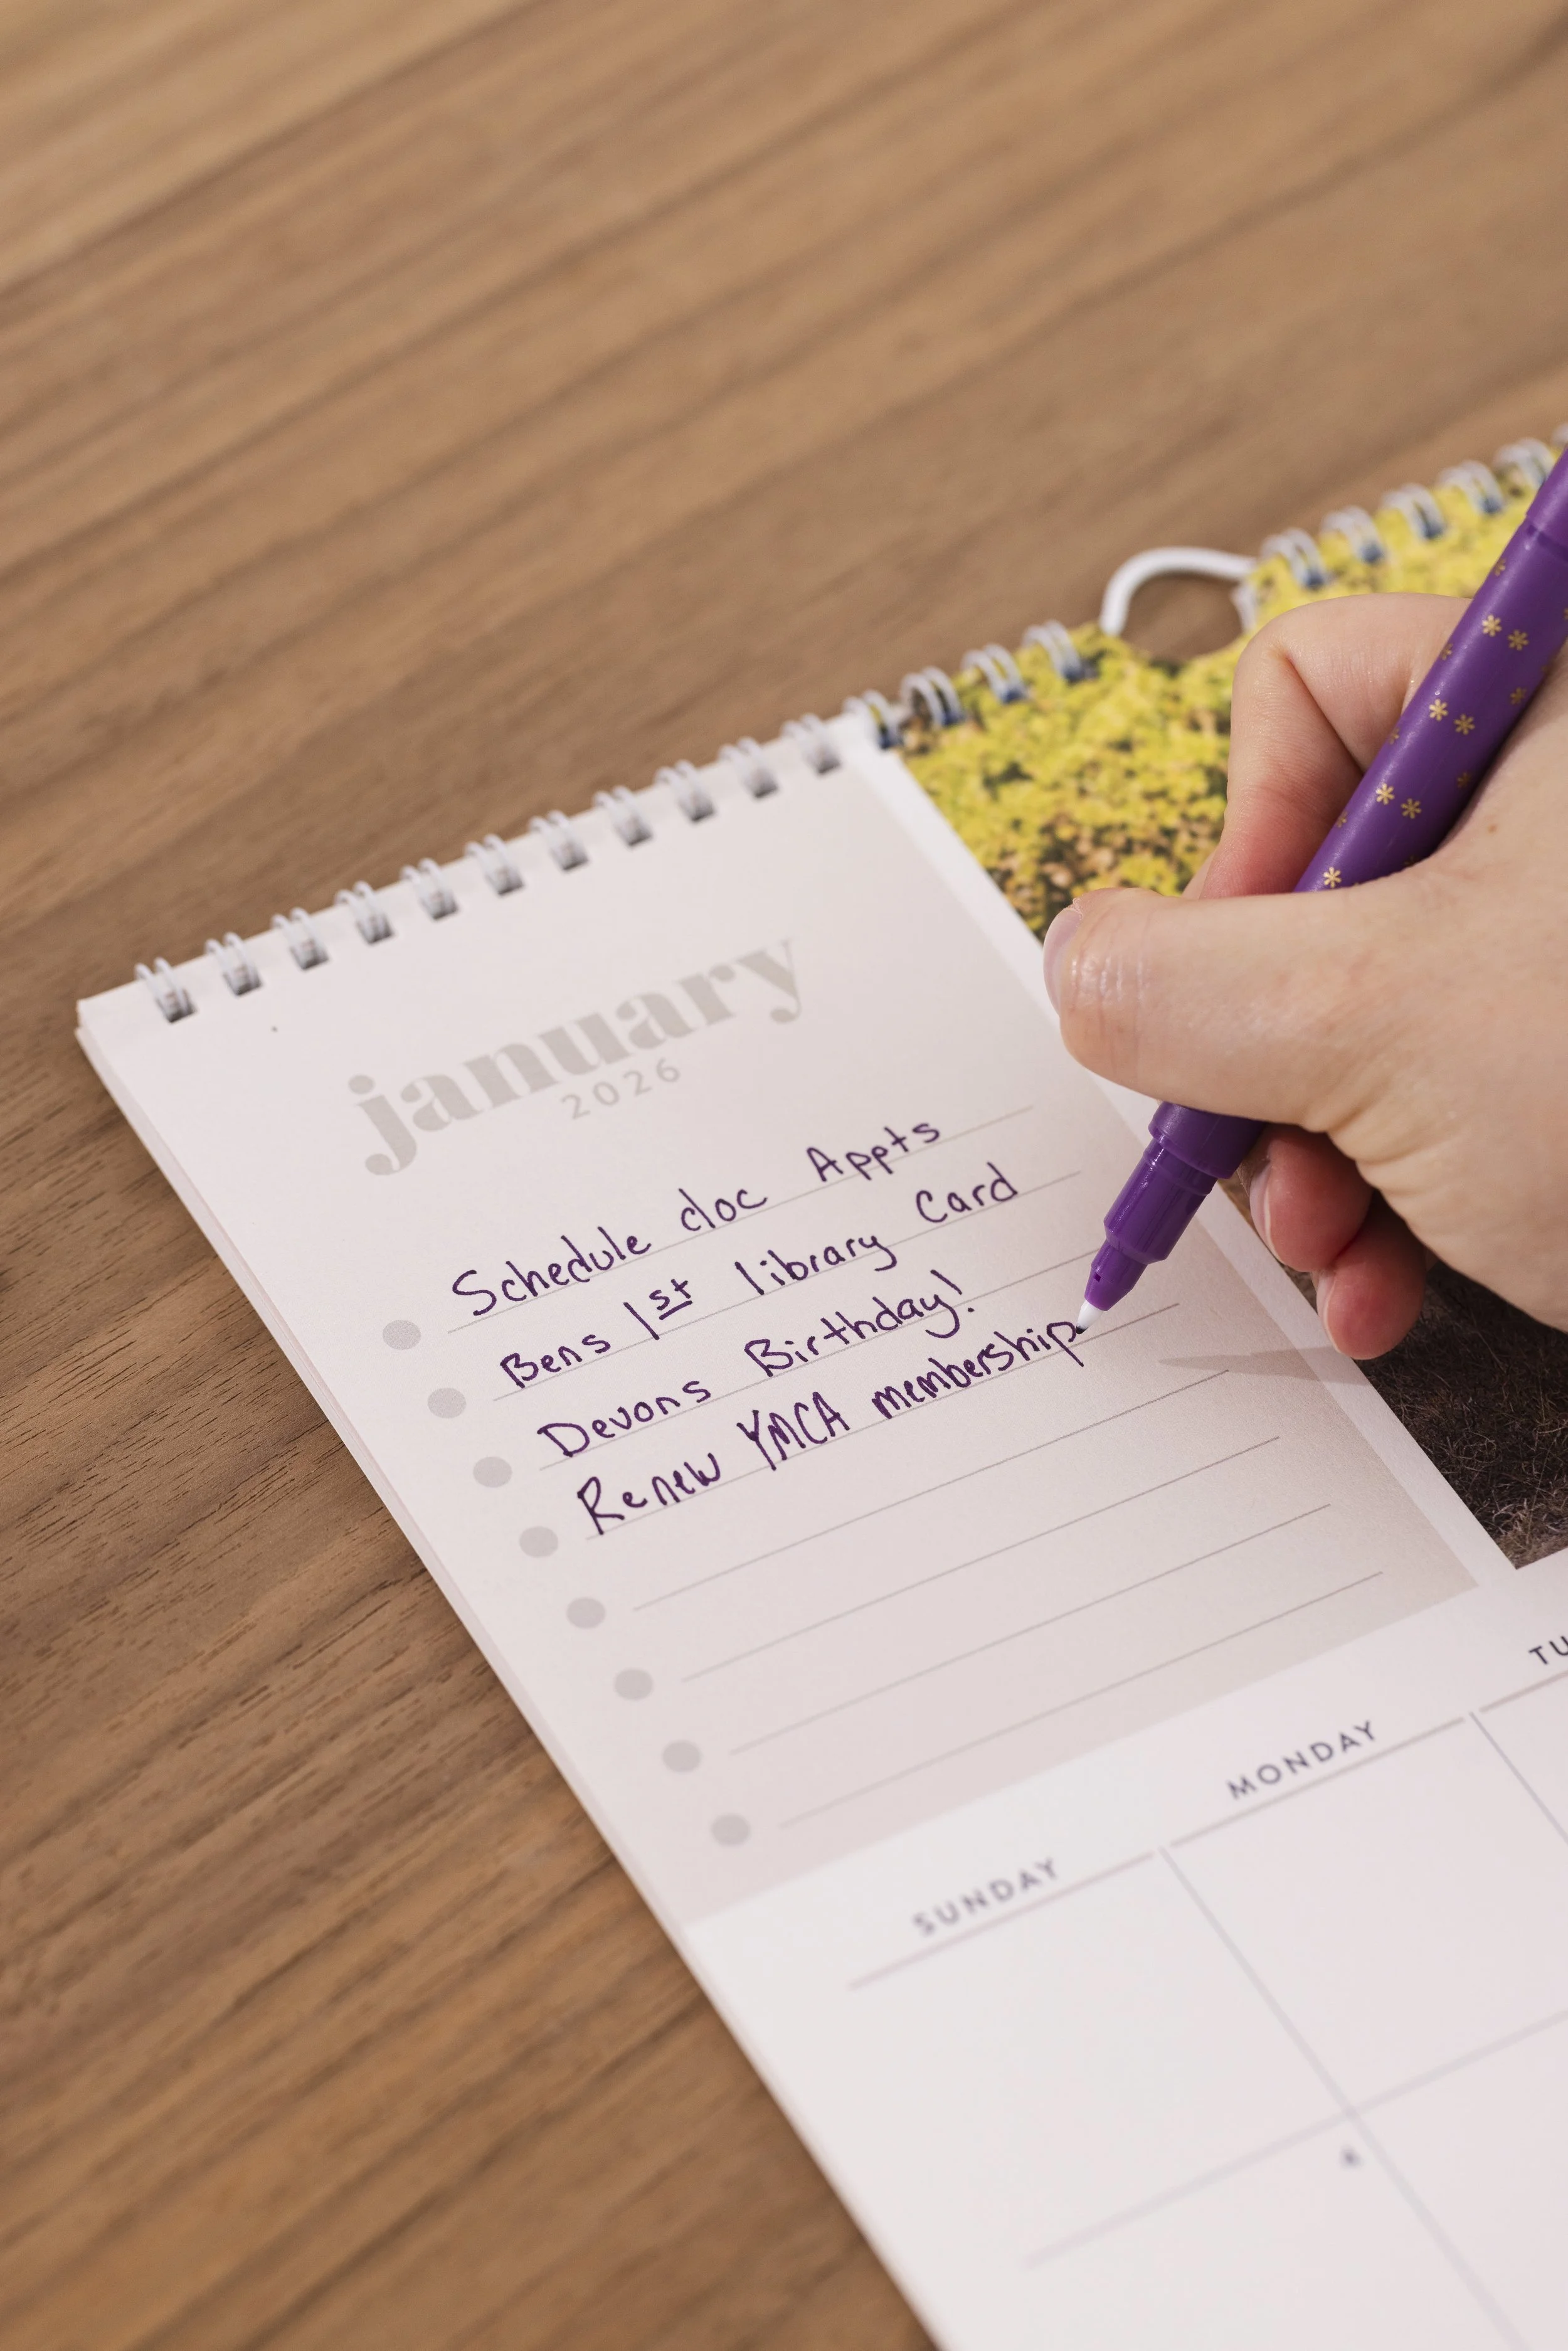 january
2026
Schedule doc Appts
Bens 1st library Card
Devons Birthday!
Renew YMCA membership
TU
MONDAY
SUNDAY
4